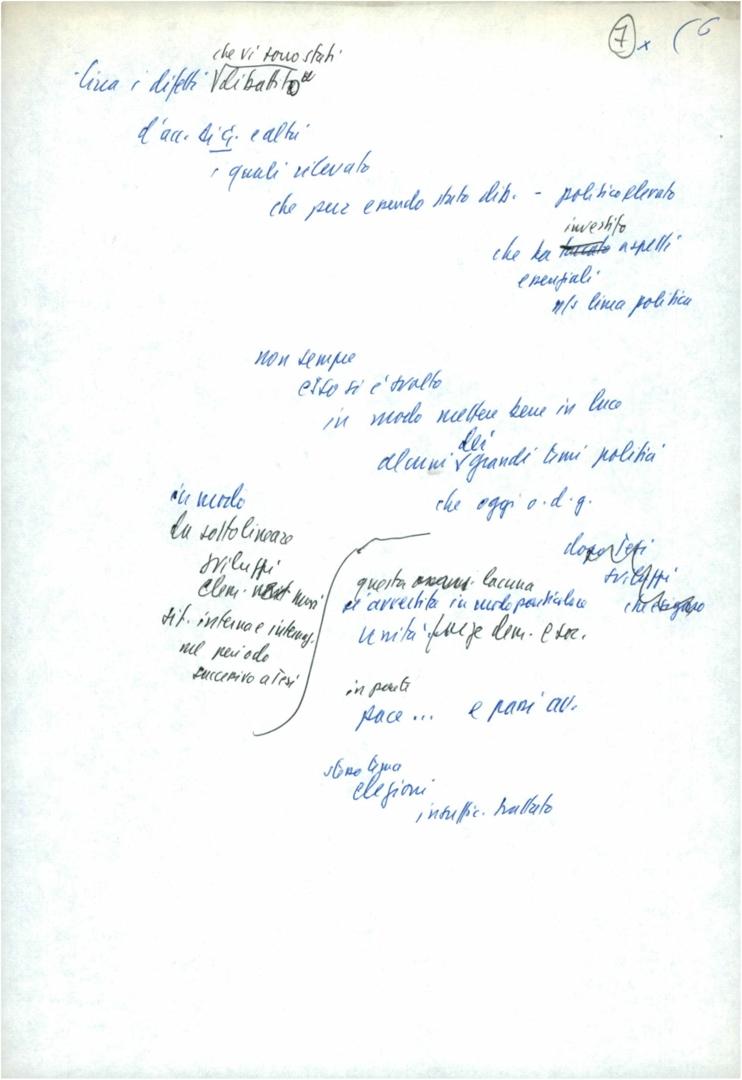 7 x (6
che vi sono stati
Circa i difetti dibattito
d'acc. e altri
i quali rilevato
che pur essendo stato dib. - politico elevato
investito
che ha toccato aspetti
essenziali
n/s linea politica
non sempre
esso si è svolto
in modo mettere bene in luce
dei
alcuni grandi temi politici
che oggi o.d.g.
in modo
da sottolineare
sviluppi
elem. nuovi
sit. interna e internaz.
nel periodo
successivo a Tesi
dopo Tesi
sviluppi
questa lacuna
si avvertita in modo particolare
unità forze dem. e soc.
in parte
pace... e paesi av.
stesso tema
elezioni
insuffic. trattato